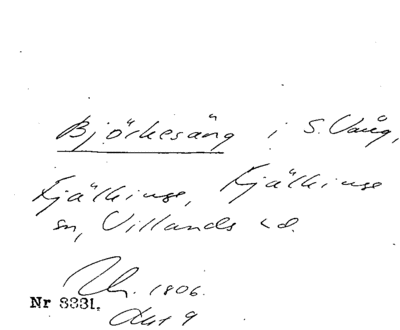 Björkesäng i S. Vång,
Fjälkinge, Fjälkinge
sn, Villands hd.
1806.
Nr 3331.